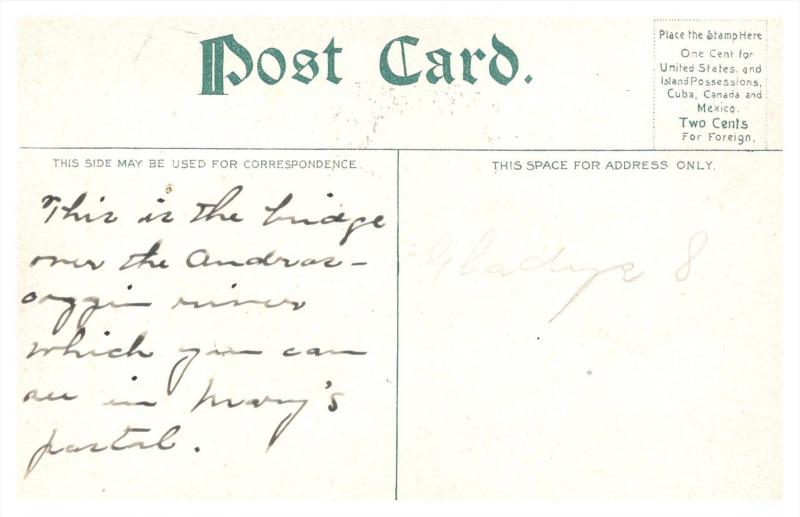 Post Card.
Place the Stamp Here
One Cent for
United States. and
Island Possessions,
Cuba, Canada and
Mexico.
Two Cents
For Foreign.
THIS SIDE MAY BE USED FOR CORRESPONDENCE.
THIS SPACE FOR ADDRESS ONLY.
This is the bridge
over the Andros-
coggin river
which you can
see in Mary's
postal.
Gladys 8